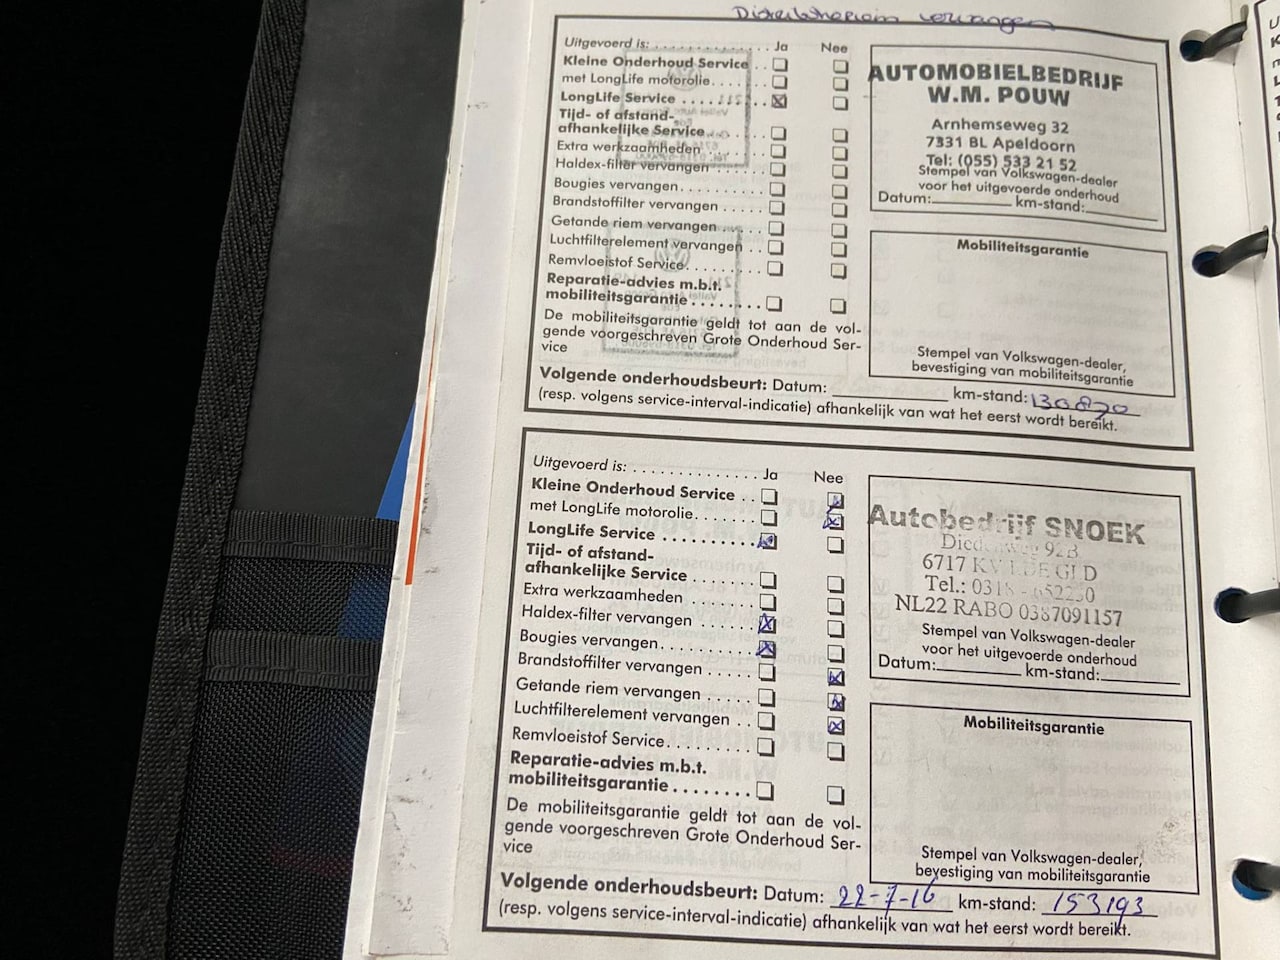 vervangen
Uitgevoerd is: Ja Nee
Kleine Onderhoud Service
met LongLife motorolie
LongLife Service ☒
Tijd- of afstand-
afhankelijke Service
Extra werkzaamheden
Haldex-filter vervangen
Bougies vervangen
Brandstoffilter vervangen
Getande riem vervangen
Luchtfilterelement vervangen
Remvloeistof Service
Reparatie-advies m.b.t.
mobiliteitsgarantie
De mobiliteitsgarantie geldt tot aan de vol-
gende voorgeschreven Grote Onderhoud Ser-
vice
AUTOMOBIELBEDRIJF
W.M. POUW
Arnhemseweg 32
7331 BL Apeldoorn
Tel: (055) 533 21 52
Stempel van Volkswagen-dealer
voor het uitgevoerde onderhoud
Datum: km-stand:
Mobiliteitsgarantie
Stempel van Volkswagen-dealer,
bevestiging van mobiliteitsgarantie
Volgende onderhoudsbeurt: Datum: km-stand: 130870
(resp. volgens service-interval-indicatie) afhankelijk van wat het eerst wordt bereikt.
Uitgevoerd is: Ja Nee
Kleine Onderhoud Service
met LongLife motorolie
LongLife Service
Tijd- of afstand-
afhankelijke Service
Extra werkzaamheden
Haldex-filter vervangen
Bougies vervangen
Brandstoffilter vervangen
Getande riem vervangen
Luchtfilterelement vervangen
Remvloeistof Service
Reparatie-advies m.b.t.
mobiliteitsgarantie
De mobiliteitsgarantie geldt tot aan de vol-
gende voorgeschreven Grote Onderhoud Ser-
vice
Autobedrijf SNOEK
92B
6717
Tel.: 0318 - 652230
NL22 RABO 0387091157
Stempel van Volkswagen-dealer
voor het uitgevoerde onderhoud
Datum: km-stand:
Mobiliteitsgarantie
Stempel van Volkswagen-dealer,
bevestiging van mobiliteitsgarantie
Volgende onderhoudsbeurt: Datum: 22-7-16 km-stand: 153193
(resp. volgens service-interval-indicatie) afhankelijk van wat het eerst wordt bereikt.